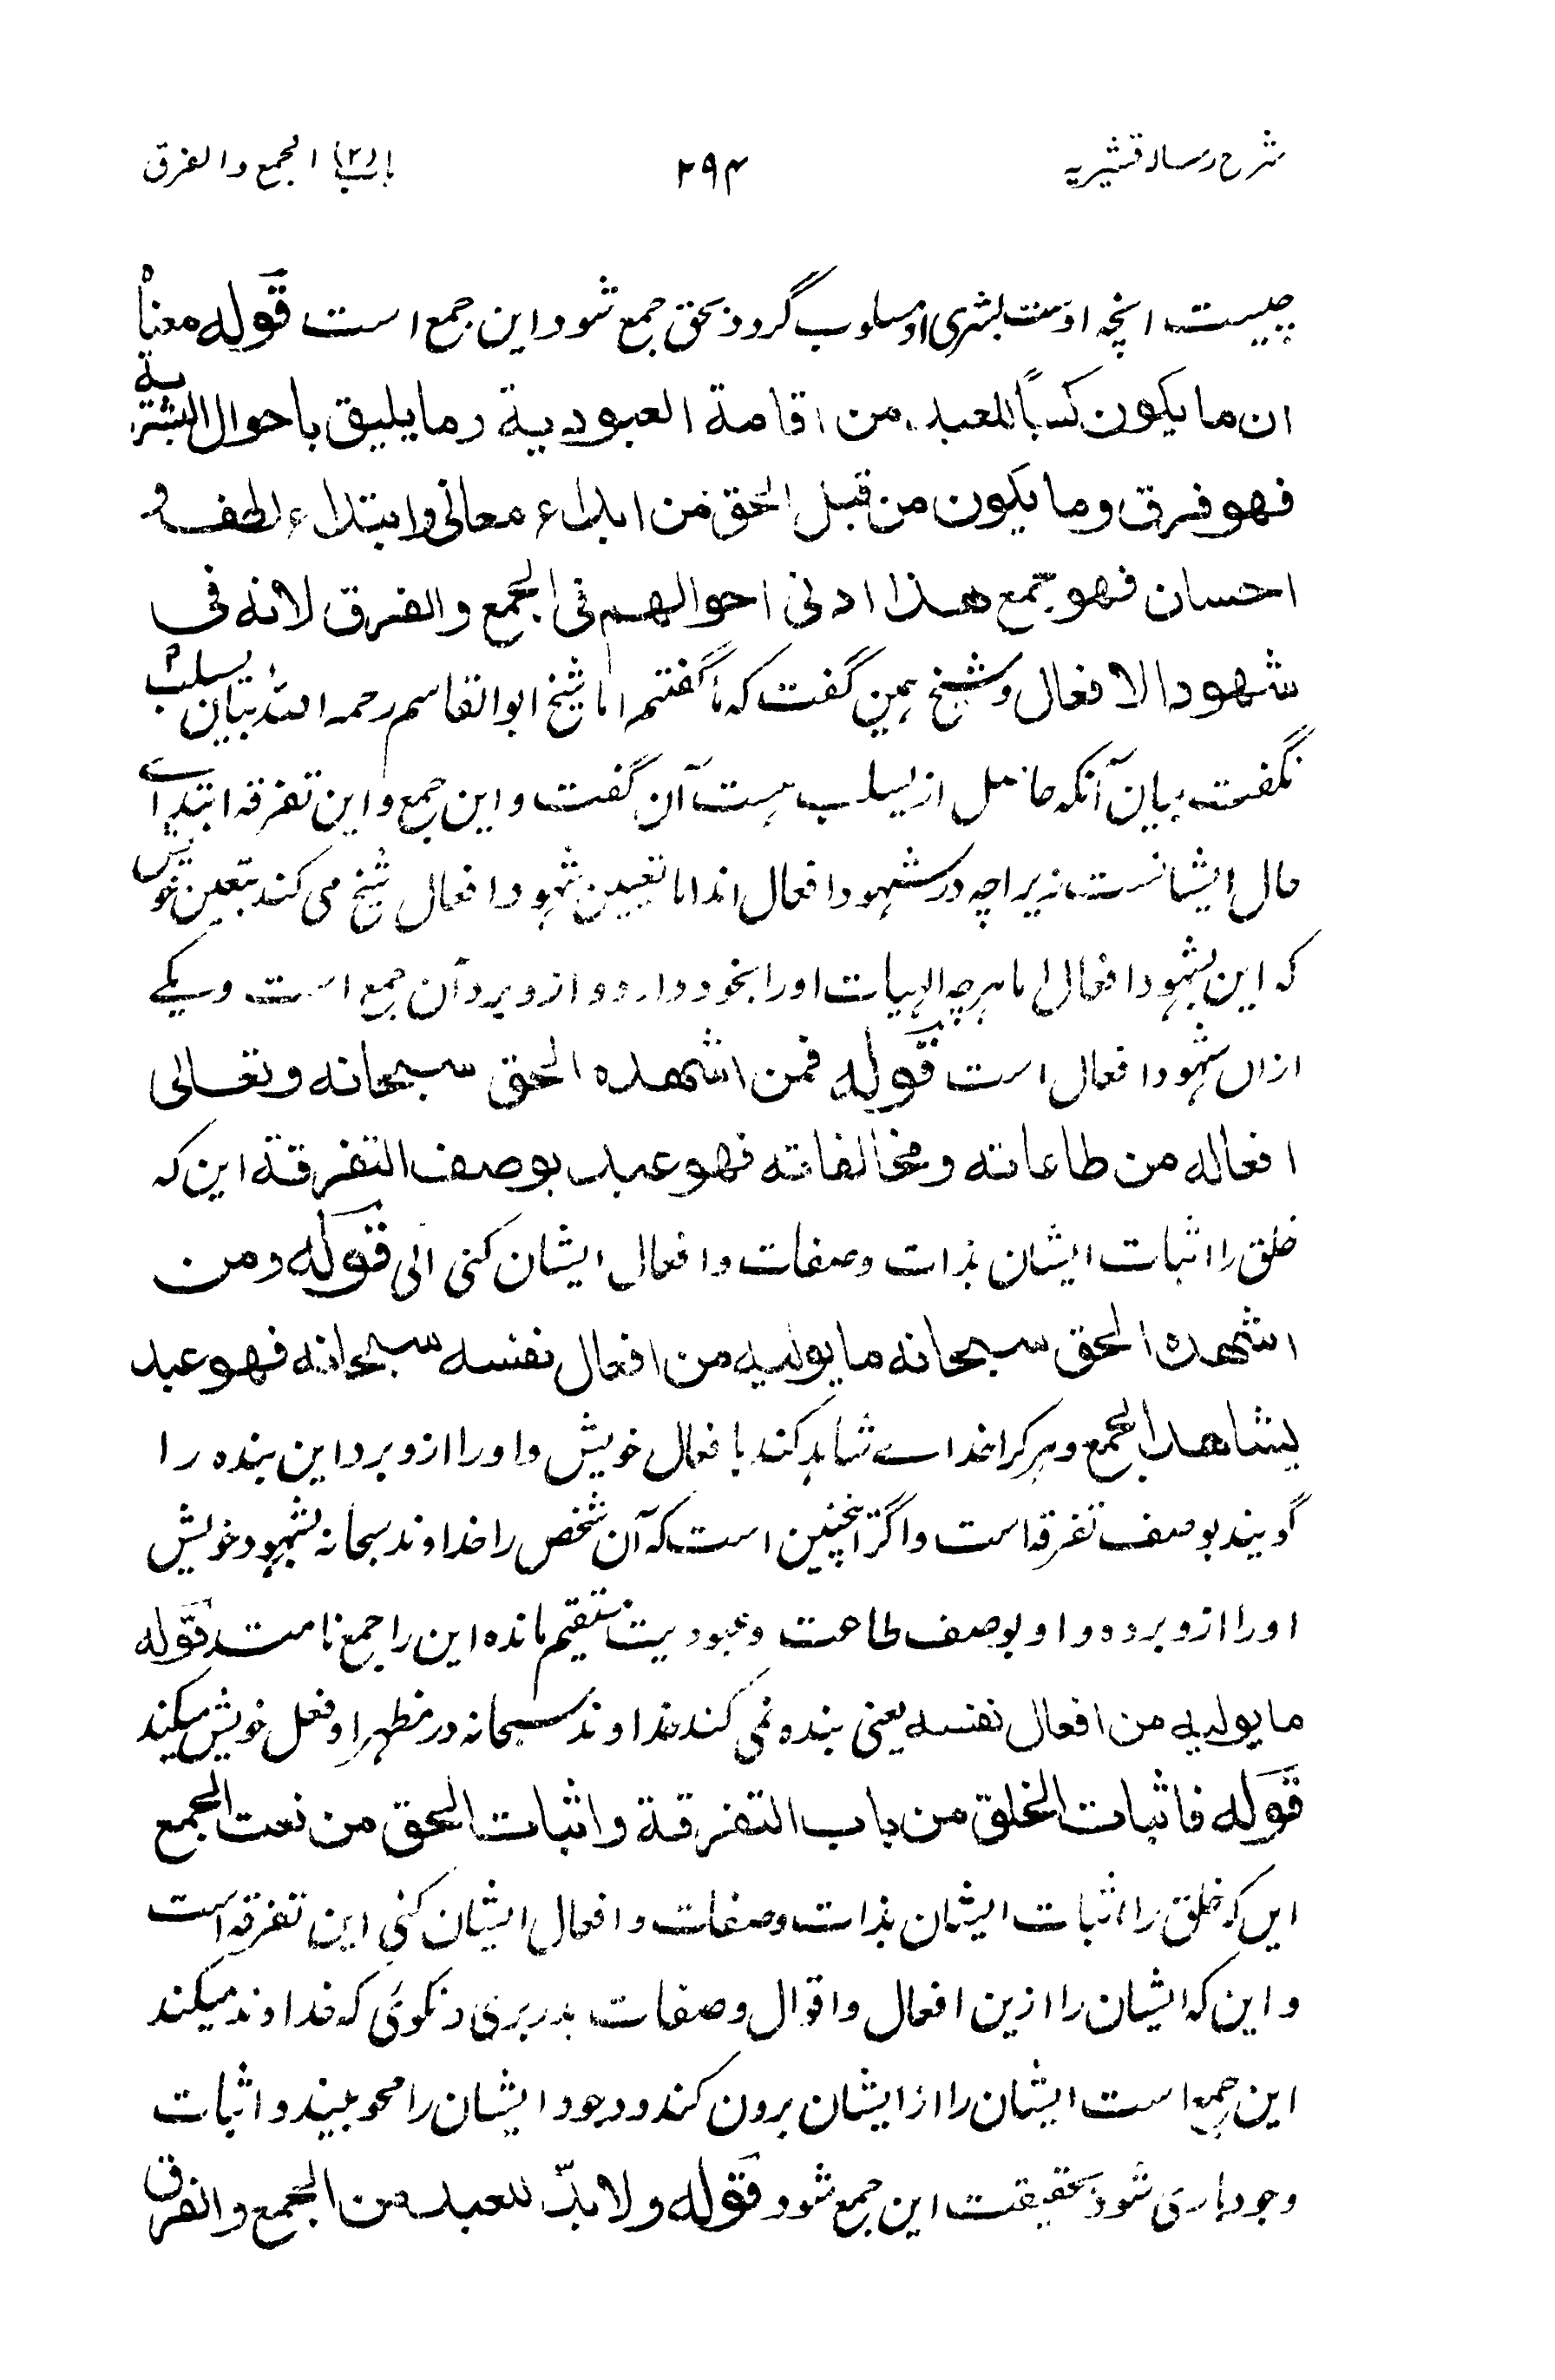 شرح رسالہ قشیریہ ۲۹۴ باب (۲) الجمع والفرق
چیست انچہ اوست بشری ازو مسلوب گردد بحق جمع شود این جمع است قوله معناہ
ان ما یکون کسبًا للعبد من اقامة العبودیة وما یلیق باحوال البشریة
فهو فرق وما یکون من قبل الحق من ابداء معانی وابتداء لطف و
احسان فهو جمع هذا ادنی احوالهم فی الجمع والفرق لانه فی
شهود الافعال و شیخ ہمین گفت کہ ما گفتیم اما شیخ ابوالقاسم رحمہ اللہ بیان یسلب
نگفت بیان آنکہ حاصل از یسلب ہست آن گفت و این جمع و این تفرقہ ابتداے
حال ایشانست زیراچہ در شہود افعال اند اما تعیین شہود افعال شیخ می کند بتعین خویش
کہ این بشہود افعال اما ہرچہ الہیات اورا بخود دارد و ازو برد آن جمع است و یکے
ازاں شہود افعال است قوله فمن اشهده الحق سبحانه وتعالی
افعاله من طاعاته ومخالفاته فهو عبد بوصف التفرقة این کہ
خلق را اثبات ایشان بذات و صفات و افعال ایشان کنی الی قوله ومن
اشهده الحق سبحانه ما یولیه من افعال نفسه سبحانه فهو عبد
یشاهد الجمع و ہر کرا خداے شاہد کند بافعال خویش و اورا ازو برد این بندہ را
گویند بوصف تفرقہ است و اگر انچنین است کہ آن شخص را خداوند سبحانہ بشہود خویش
اورا ازو بردہ و او بوصف طاعت و عبودیت مستقیم ماندہ این را جمع نامست قوله
ما یولیه من افعال نفسه یعنی بندہ نمی کند خداوند سبحانہ در مظہر او فعل خویش میکند
قوله فاثبات الخلق من باب التفرقة واثبات الحق من نعت الجمع
این کہ خلق را اثبات ایشان بذات و صفات و افعال ایشان کنی این تفرقہ است
و این کہ ایشان را ازین افعال و اقوال و صفات بدر بری و نکوئی کہ خداوند میکند
این جمع است ایشان را از ایشان برون کند و وجود ایشان را محو بیند و اثبات
وجود باری شود بحقیقت این جمع شود قوله ولا بدّ للعبد من الجمع والفرق